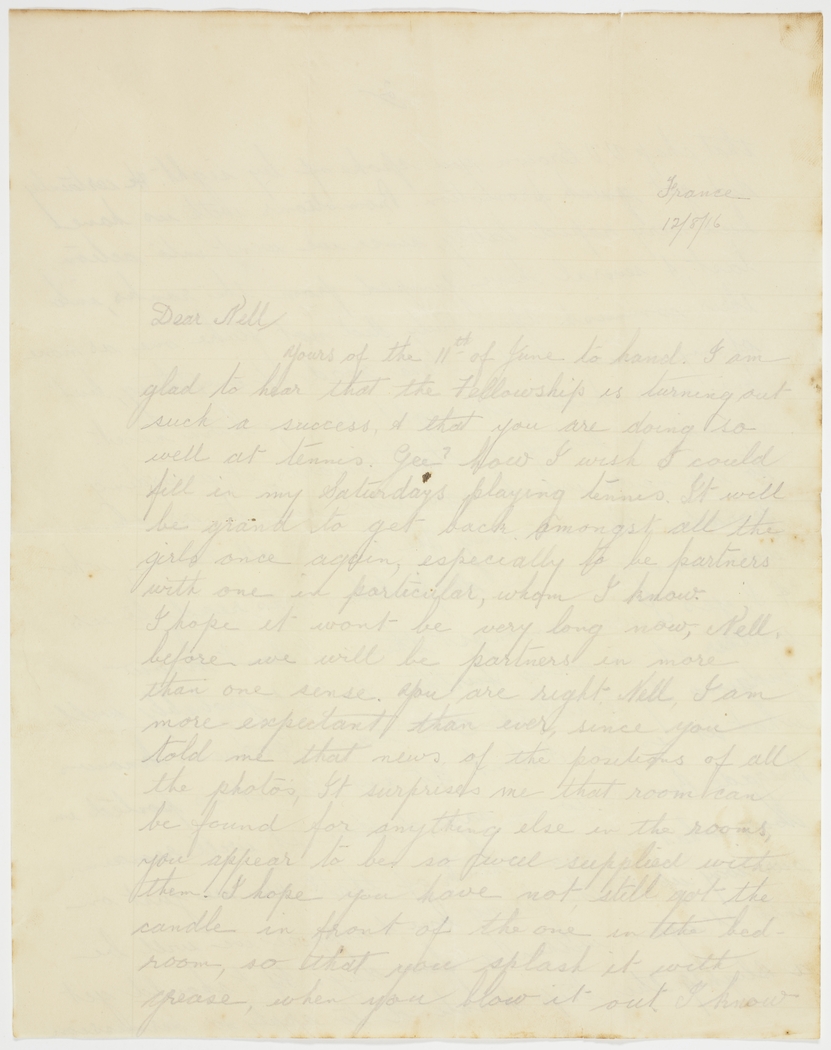 France
12/8/16
Dear Nell
Yours of the 11th of June to hand. I am
glad to hear that the Fellowship is turning out
such a success, & that you are doing so
well at tennis. Gee? How I wish I could
fill in my Saturdays playing tennis. It will
be grand to get back amongst all the
girls once again, especially to be partners
with one in particular, whom I know.
I hope it wont be very long now, Nell,
before we will be partners in more
than one sense. You are right, Nell, I am
more expectant than ever, since you
told me that news of the positions of all
the photos, It surprises me that room can
be found for anything else in the rooms,
you appear to be so well supplied with
them. I hope you have not still got the
candle in front of the one in the bed-
room, so that you splash it with
grease, when you blow it out I know